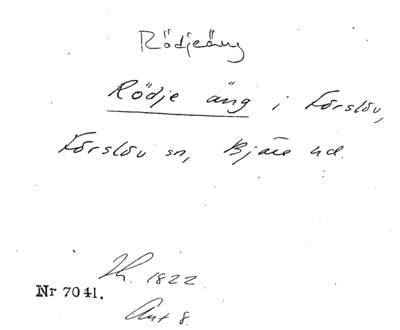 Rödjeäng
Rödje äng i Förslöv,
Förslöv sn, Bjäre hd.
1822.
Nr 7041.
Akt 8.